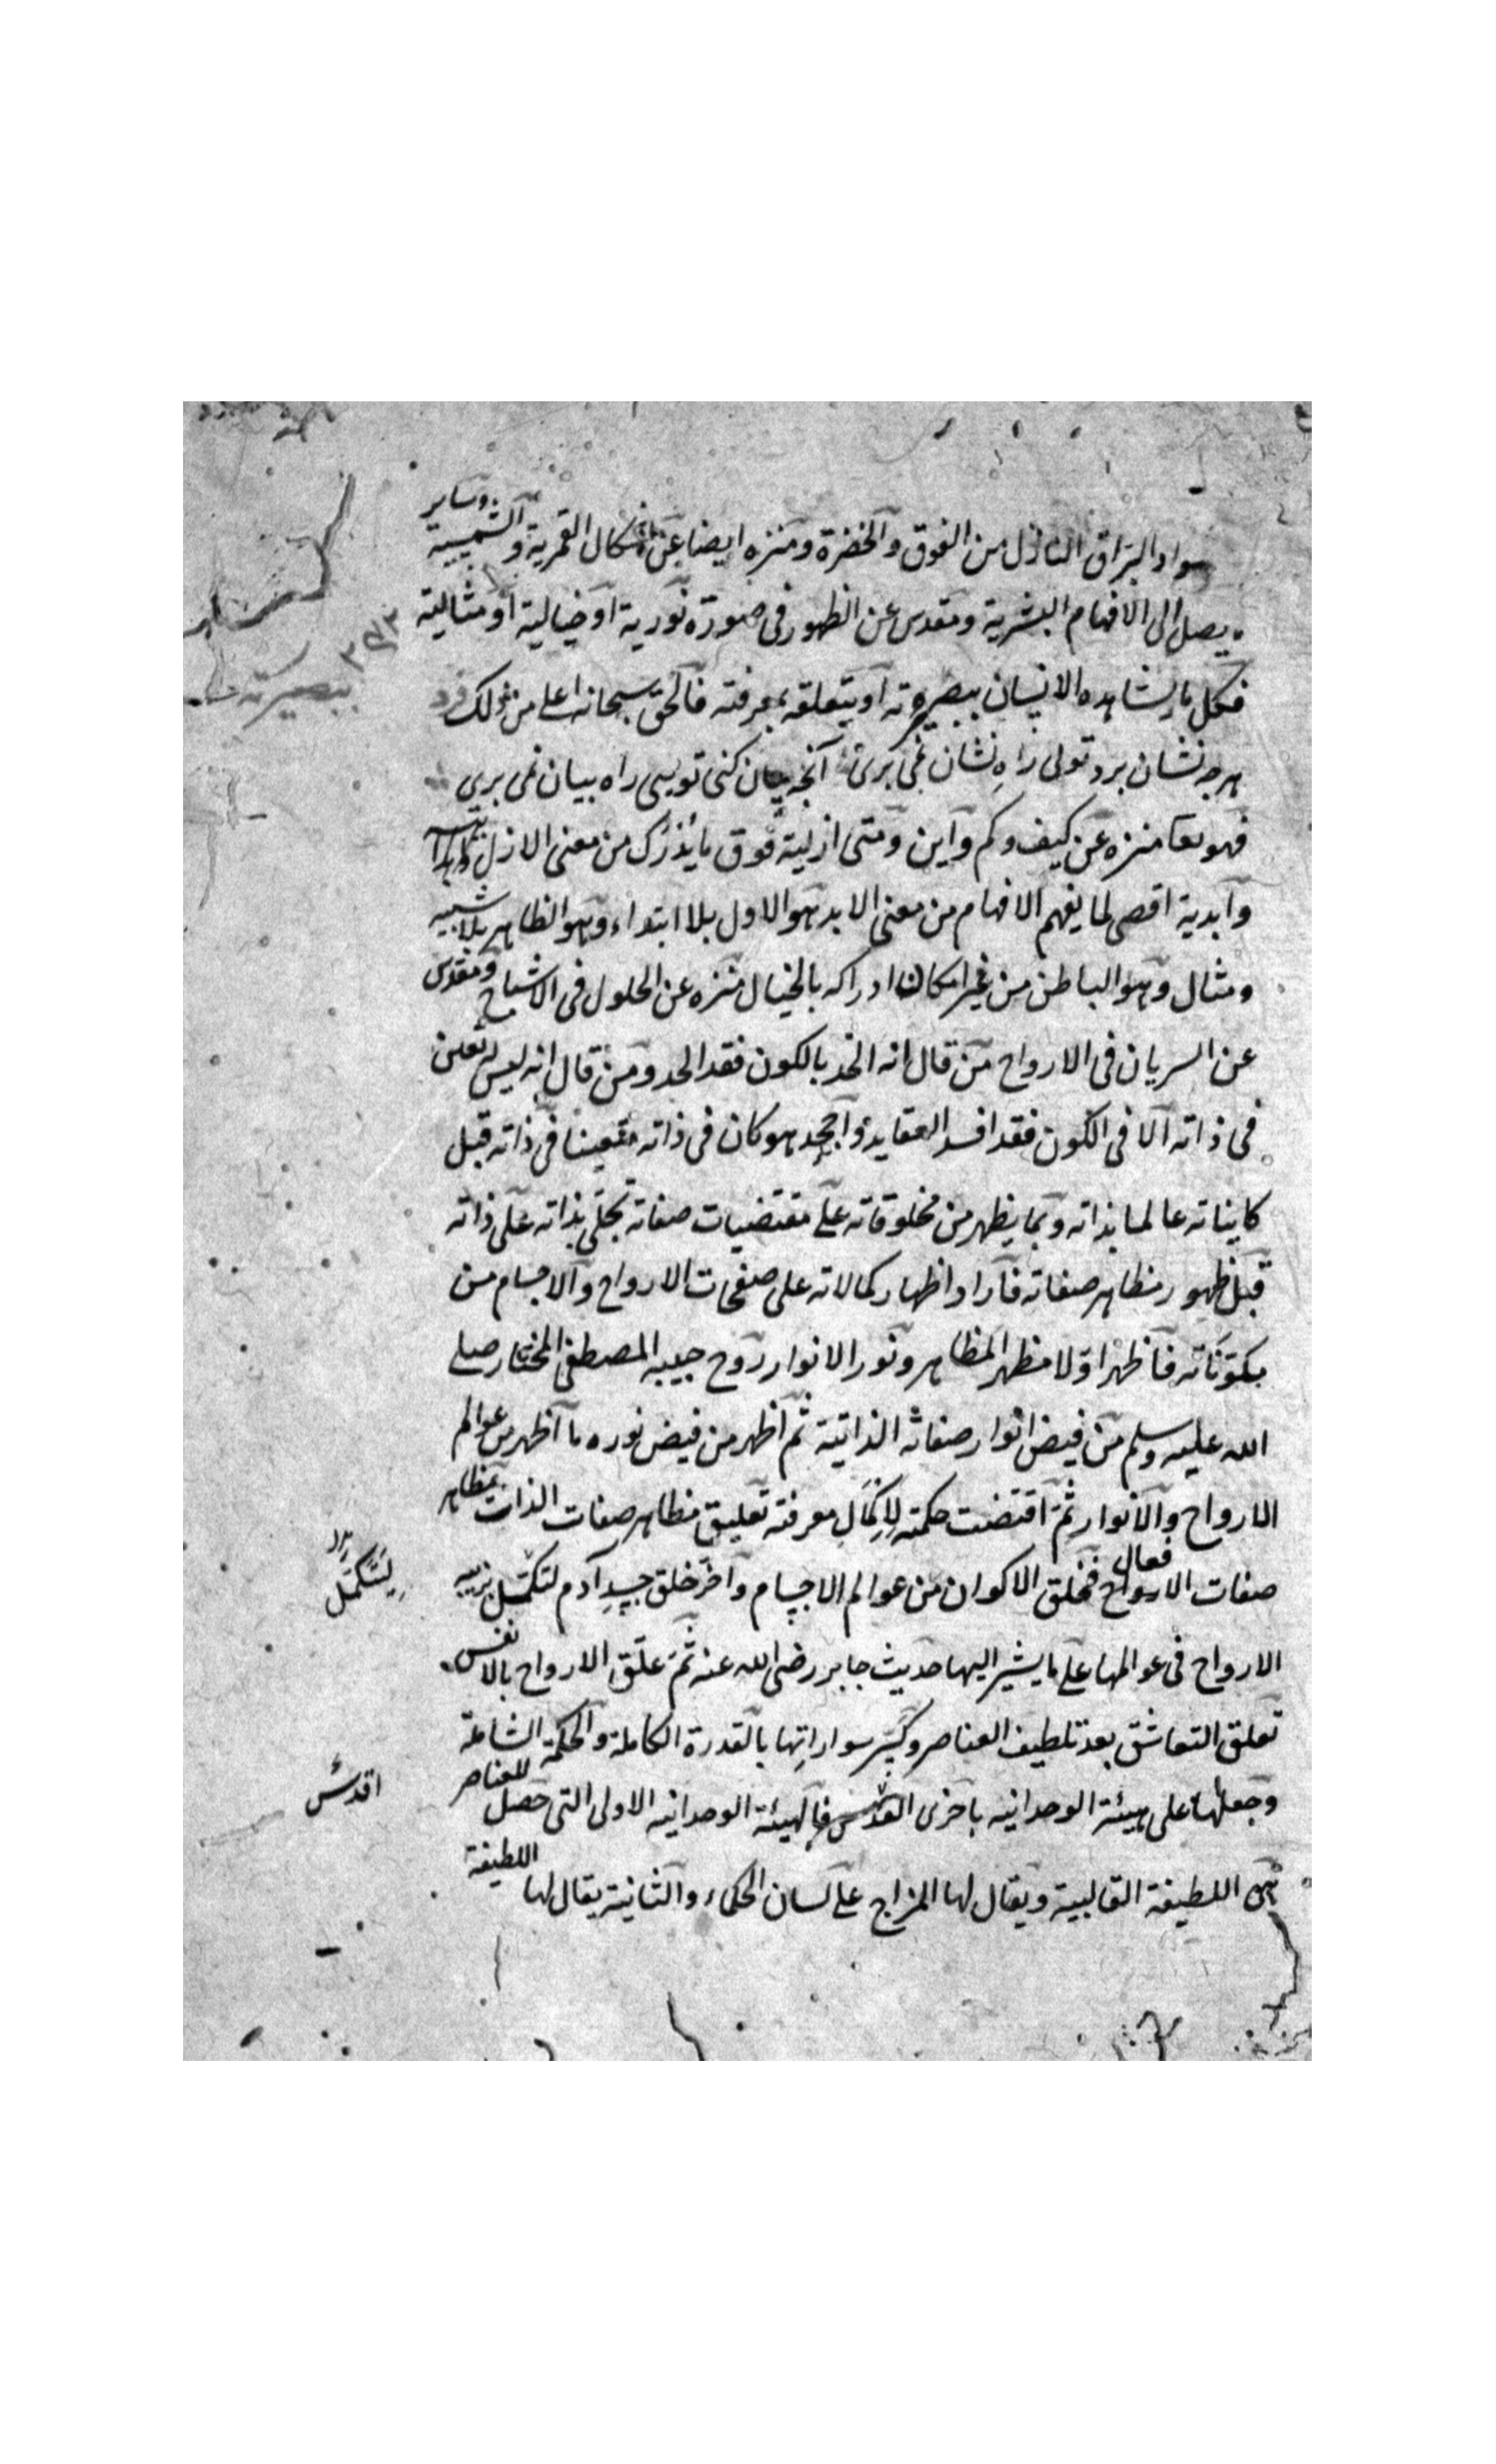 سواد البراق النازل من الفوق والخضرة ومنزه ايضا عن اشكال القمرية والشمسية وساير
يصل الى الافهام البشرية ومقدس عن الظهور فى صورة نورية او خيالية او مثالية
فكل ما يشاهده الانسان ببصيرته او يتعلقه بمعرفته فالحق سبحانه اعلى من ذلك
هرچه نشان برد تولى راه نشان نمى برى آنچه بيان كنى تويى راه بيان نمى برى
فهو تعا منزه عن كيف وكم واين ومتى ازلية فوق ما يدرك من معنى الازل
وابدية اقصى لما يفهم الافهام من معنى الابد هو الاول بلا ابتداء وهو الظاهر بلا شبيه
ومثال وهو الباطن من غير امكان ادراكه بالخيال منزه عن الحلول فى الاشباح ومقدس
عن السريان فى الارواح من قال انه اتحد بالكون فقد الحد ومن قال انه ليس له تعين
فى ذاته الا فى الكون فقد افسد العقايد واجحد هو كان فى ذاته متعينا فى ذاته قبل
كايناته عالما بذاته وبما يظهر من مخلوقاته على مقتضيات صفاته تجلى بذاته على ذاته
قبل ظهور مظاهر صفاته فاراد اظهار كمالاته على صفحات الارواح والاجسام من
مكوناته فاظهر اولا مظهر المظاهر ونور الانوار روح حبيبه المصطفى المختار صلى
الله عليه وسلم من فيض انوار صفاته الذاتية ثم اظهر من فيض نوره ما اظهر من عوالم
الارواح والانوار ثم اقتضت حكمته لاكمال معرفته تعليق مظاهر صفات الذات بمظاهر
صفات الافعال فخلق الاكوان من عوالم الاجسام واخر خلق جسد آدم لتكمل تربيه
لِيَستكمل
الارواح فى عوالمها على ما يشير اليها حديث جابر رضى الله عنه ثم علق الارواح بالانفس
تعلق التعاشق بعد تلطيف العناصر وكسر سواراتها بالقدرة الكاملة والحكمة الشاملة
وجعلها على هيئة الوحدانيه باخرى القدس فالهيئة الوحدانيه الاولى التى حصل للعناصر
اقدس
هى اللطيفة القالبية ويقال لها المزاج على لسان الحكماء والثانية يقال لها اللطيفة